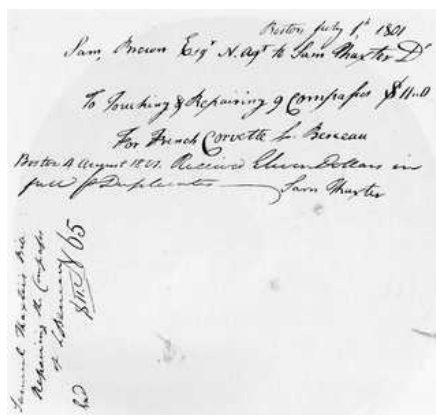 Boston July 1st, 1801
Sam, Brown Esqr N. Agt to Sam Thaxter Dr
To Touching & Repairing 9 Compasses $11.0
For French Corvette Le Berceau
Boston 4 August 1801. Received Eleven Dollars in
full Duplicates — Sam Thaxter
Samuel Thaxters Bill
Repairing the Compasses
of L Berceau
$11.0
65